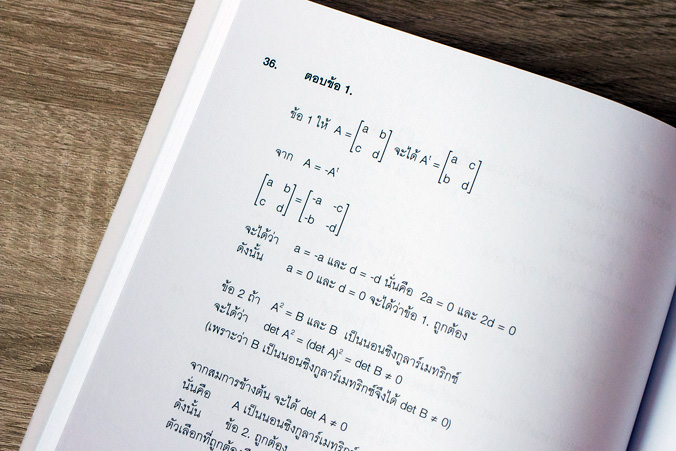 36. ตอบข้อ 1.
ข้อ 1 ให้ A = [a b; c d] จะได้ Aᵗ = [a c; b d]
จาก A = -Aᵗ
[a b; c d] = [-a -c; -b -d]
จะได้ว่า a = -a และ d = -d นั่นคือ 2a = 0 และ 2d = 0
ดังนั้น a = 0 และ d = 0 จะได้ว่าข้อ 1. ถูกต้อง
ข้อ 2 ถ้า A² = B และ B เป็นนอนซิงกูลาร์เมทริกซ์
จะได้ว่า det A² = (det A)² = det B ≠ 0
(เพราะว่า B เป็นนอนซิงกูลาร์เมทริกซ์จึงได้ det B ≠ 0)
จากสมการข้างต้น จะได้ det A ≠ 0
นั่นคือ A เป็นนอนซิงกูลาร์เมทริกซ์
ดังนั้น ข้อ 2. ถูกต้อง
ตัวเลือกที่ถูกต้อง